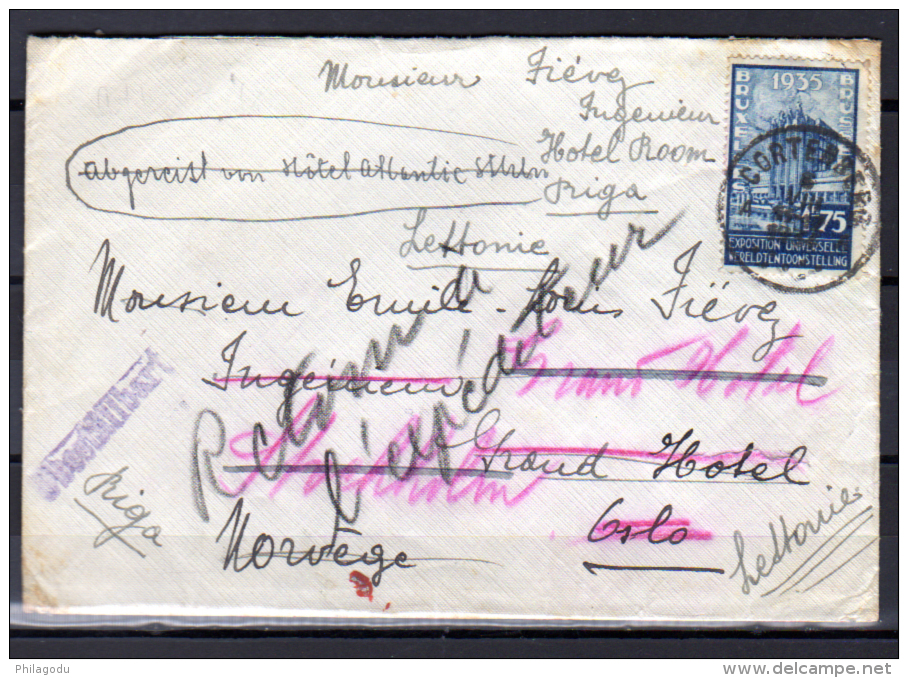 Monsieur Fiévez
Ingenieur
Hotel Room
Riga
Lettonie
abgereist von Hôtel Atlantic
Monsieur Emile-Louis Fiévez
Ingénieur
Grand Hotel
Stockholm
Grand Hotel
Oslo
Norvège
Retour à
l'expéditeur
Riga
Lettonie
Unbestellbart
1935
BRUXELLES
EXPOSITION UNIVERSELLE
WERELDTENTOONSTELLING
75
CORTENBERG
Philagodu
www.delcampe.net